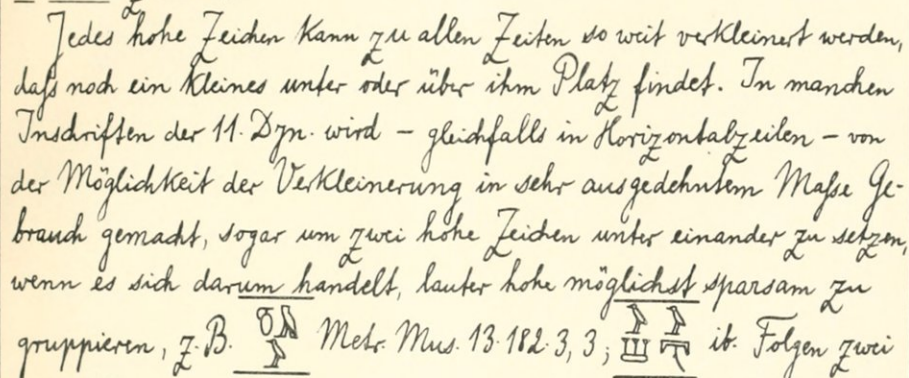 Jedes hohe Zeichen kann zu allen Zeiten so weit verkleinert werden,
daſs noch ein kleines unter oder über ihm Platz findet. In manchen
Inschriften der 11. Dyn. wird – gleichfalls in Horizontalzeilen – von
der Möglichkeit der Verkleinerung in sehr ausgedehntem Maſse Ge-
brauch gemacht, sogar um zwei hohe Zeichen unter einander zu setzen,
wenn es sich darum handelt, lauter hohe möglichst sparsam zu
gruppieren, z. B. Metr. Mus. 13.182.3, 3; ib. Folgen zwei